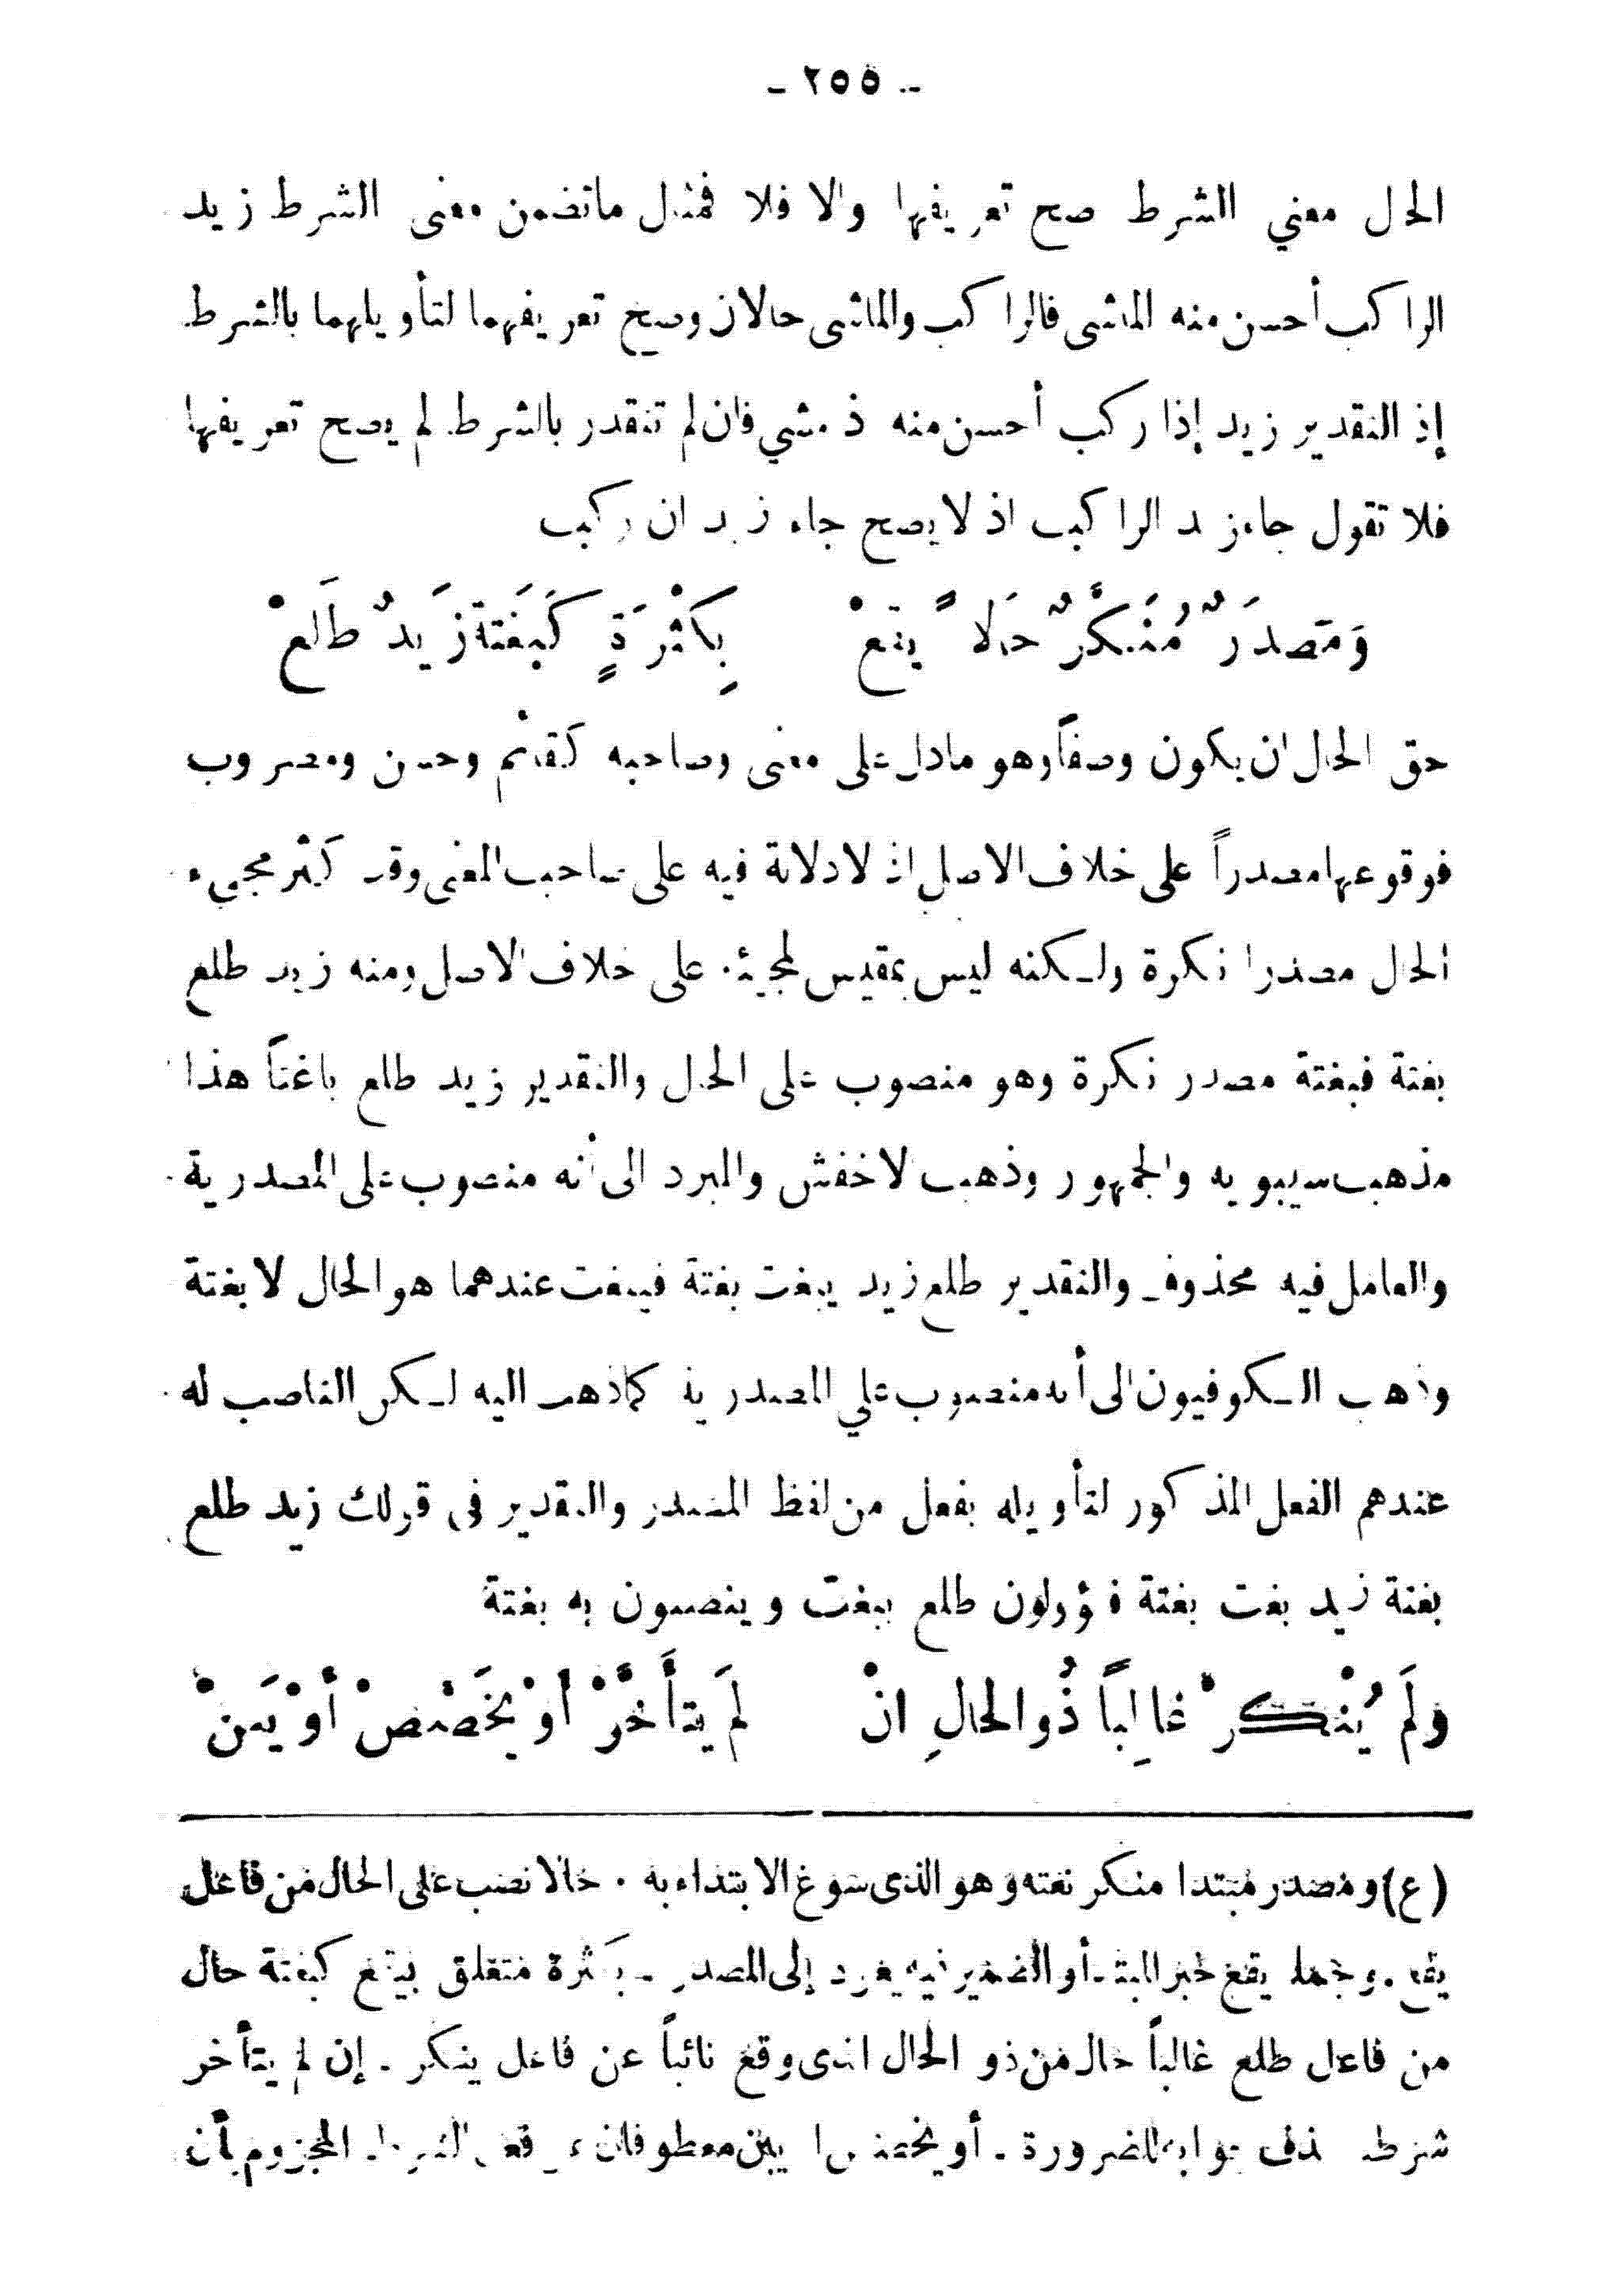 - ٢٥٥ -
الحال معني الشرط صح تعريفها والا فلا فمثال ماتضمن معنى الشرط زيد
الراكب أحسن منه الماشى فالراكب والماشى حالان وصح تعريفهما لتأويلهما بالشرط
إذ التقدير زيد إذا ركب أحسن منه إذ مشي فان لم تتقدر بالشرط لم يصح تعريفها
فلا تقول جاء زيد الراكب اذ لا يصح جاء زيد ان ركب
وَمَصدَرٌ مُنَكَّرٌ حَالاً يقَعْ بِكَثْرَةٍ كَبَغتَةً زَيدٌ طَلَعْ
حق الحال ان يكون وصفاً وهو مادل على معنى وصاحبه كقائم وحسن ومضروب
فوقوعها مصدراً على خلاف الاصل اذ لا دلالة فيه على صاحب المعنى وقد كثر مجىء
الحال مصدرا نكرة ولكنه ليس بمقيس لمجيئه على خلاف الاصل ومنه زيد طلع
بغتة فبغتة مصدر نكرة وهو منصوب على الحال والتقدير زيد طلع باغتاً هذا
مذهب سيبويه والجمهور وذهب الاخفش والمبرد الى أنه منصوب على المصدرية
والعامل فيه محذوف والتقدير طلع زيد يبغت بغتة فيبغت عندهما هو الحال لا بغتة
وذهب الكوفيون الى أنه منصوب علي المصدرية كما ذهبا اليه لكن الناصب له
عندهم الفعل المذكور لتأويله بفعل من لفظ المصدر والتقدير فى قولك زيد طلع
بغتة زيد بغت بغتة فيؤولون طلع ببغت وينصبون به بغتة
وَلَم يُنَكَّرْ غَالِباً ذُو الحالِ انْ لَم يَتَأَخَّرْ أوْ يُخَصَّصْ أوْ يَبِنْ
(ع) ومصدر مبتدا منكر نعته وهو الذى سوغ الابتداء به . حالا نصب على الحال من فاعل
يقع . وجملة يقع خبر المبتدأ والضمير فيه يعود إلى المصدر - بكثرة متعلق بيقع كبغتة حال
من فاعل طلع غالباً حال من ذو الحال الذى وقع نائباً عن فاعل ينكر - إن لم يتأخر
شرط حذف جوابه للضرورة - أو يخصص او يبن معطوفان على فعل الشرط المجزوم بأن